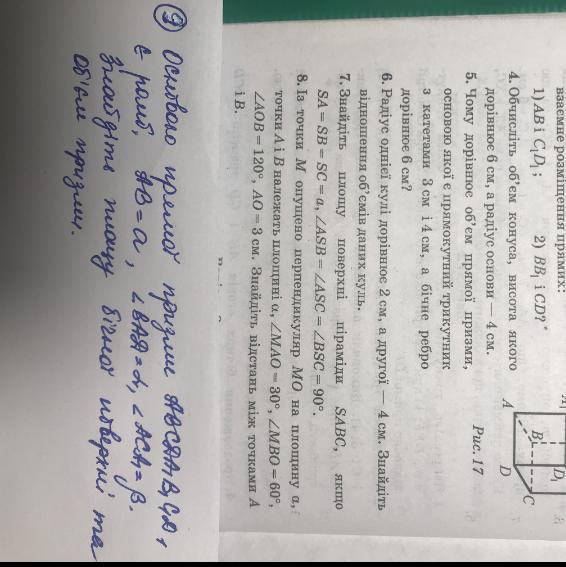 взаємне розміщення прямих:
1) AB і C₁D₁; 2) BB₁ і CD?
4. Обчисліть об'єм конуса, висота якого
дорівнює 6 см, а радіус основи — 4 см.
5. Чому дорівнює об'єм прямої призми,
основою якої є прямокутний трикутник
з катетами 3 см і 4 см, а бічне ребро
дорівнює 6 см?
A
B
D
D₁
C
Рис. 17
6. Радіус однієї кулі дорівнює 2 см, а другої — 4 см. Знайдіть
відношення об'ємів даних куль.
7. Знайдіть площу поверхні піраміди SABC, якщо
SA = SB = SC = a, ∠ASB = ∠ASC = ∠BSC = 90°.
8. Із точки M опущено перпендикуляр MO на площину α,
точки A і B належать площині α, ∠MAO = 30°, ∠MBO = 60°,
∠AOB = 120°, AO = 3 см. Знайдіть відстань між точками A
і B.
9) Основою прямої призми ABCDA₁B₁C₁D₁
є ромб, AB = a, ∠BAD = α, ∠ACA₁ = β.
Знайдіть площу бічної поверхні та
об'єм призми.